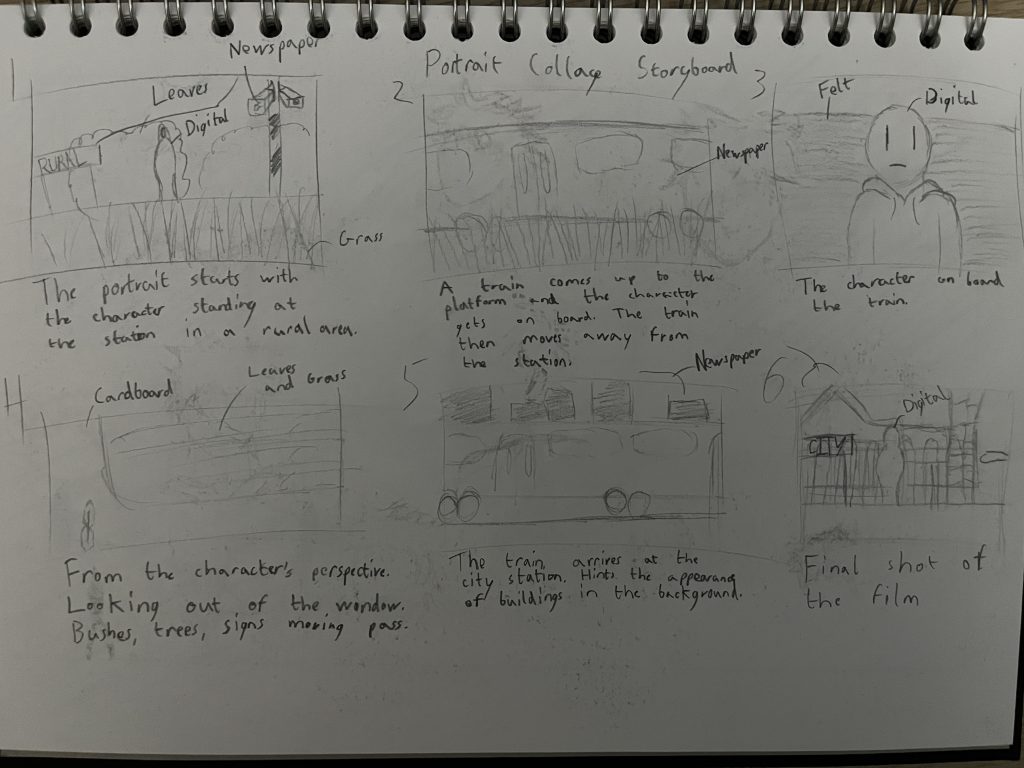 Portrait Collage Storyboard
1
Newspaper
Leaves
Digital
RURAL
Grass
The portrait starts with
the character standing at
the station in a rural area.
2
Newspaper
A train comes up to the
platform and the character
gets on board. The train
then moves away from
the station.
3
Felt
Digital
The character on board
the train.
4
Cardboard
Leaves
and Grass
From the character's perspective.
Looking out of the window.
Bushes, trees, signs moving pass.
5
Newspaper
The train arrives at the
city station. Hints the appearang
of buildings in the background.
6
Digital
CITY
Final shot of
the film